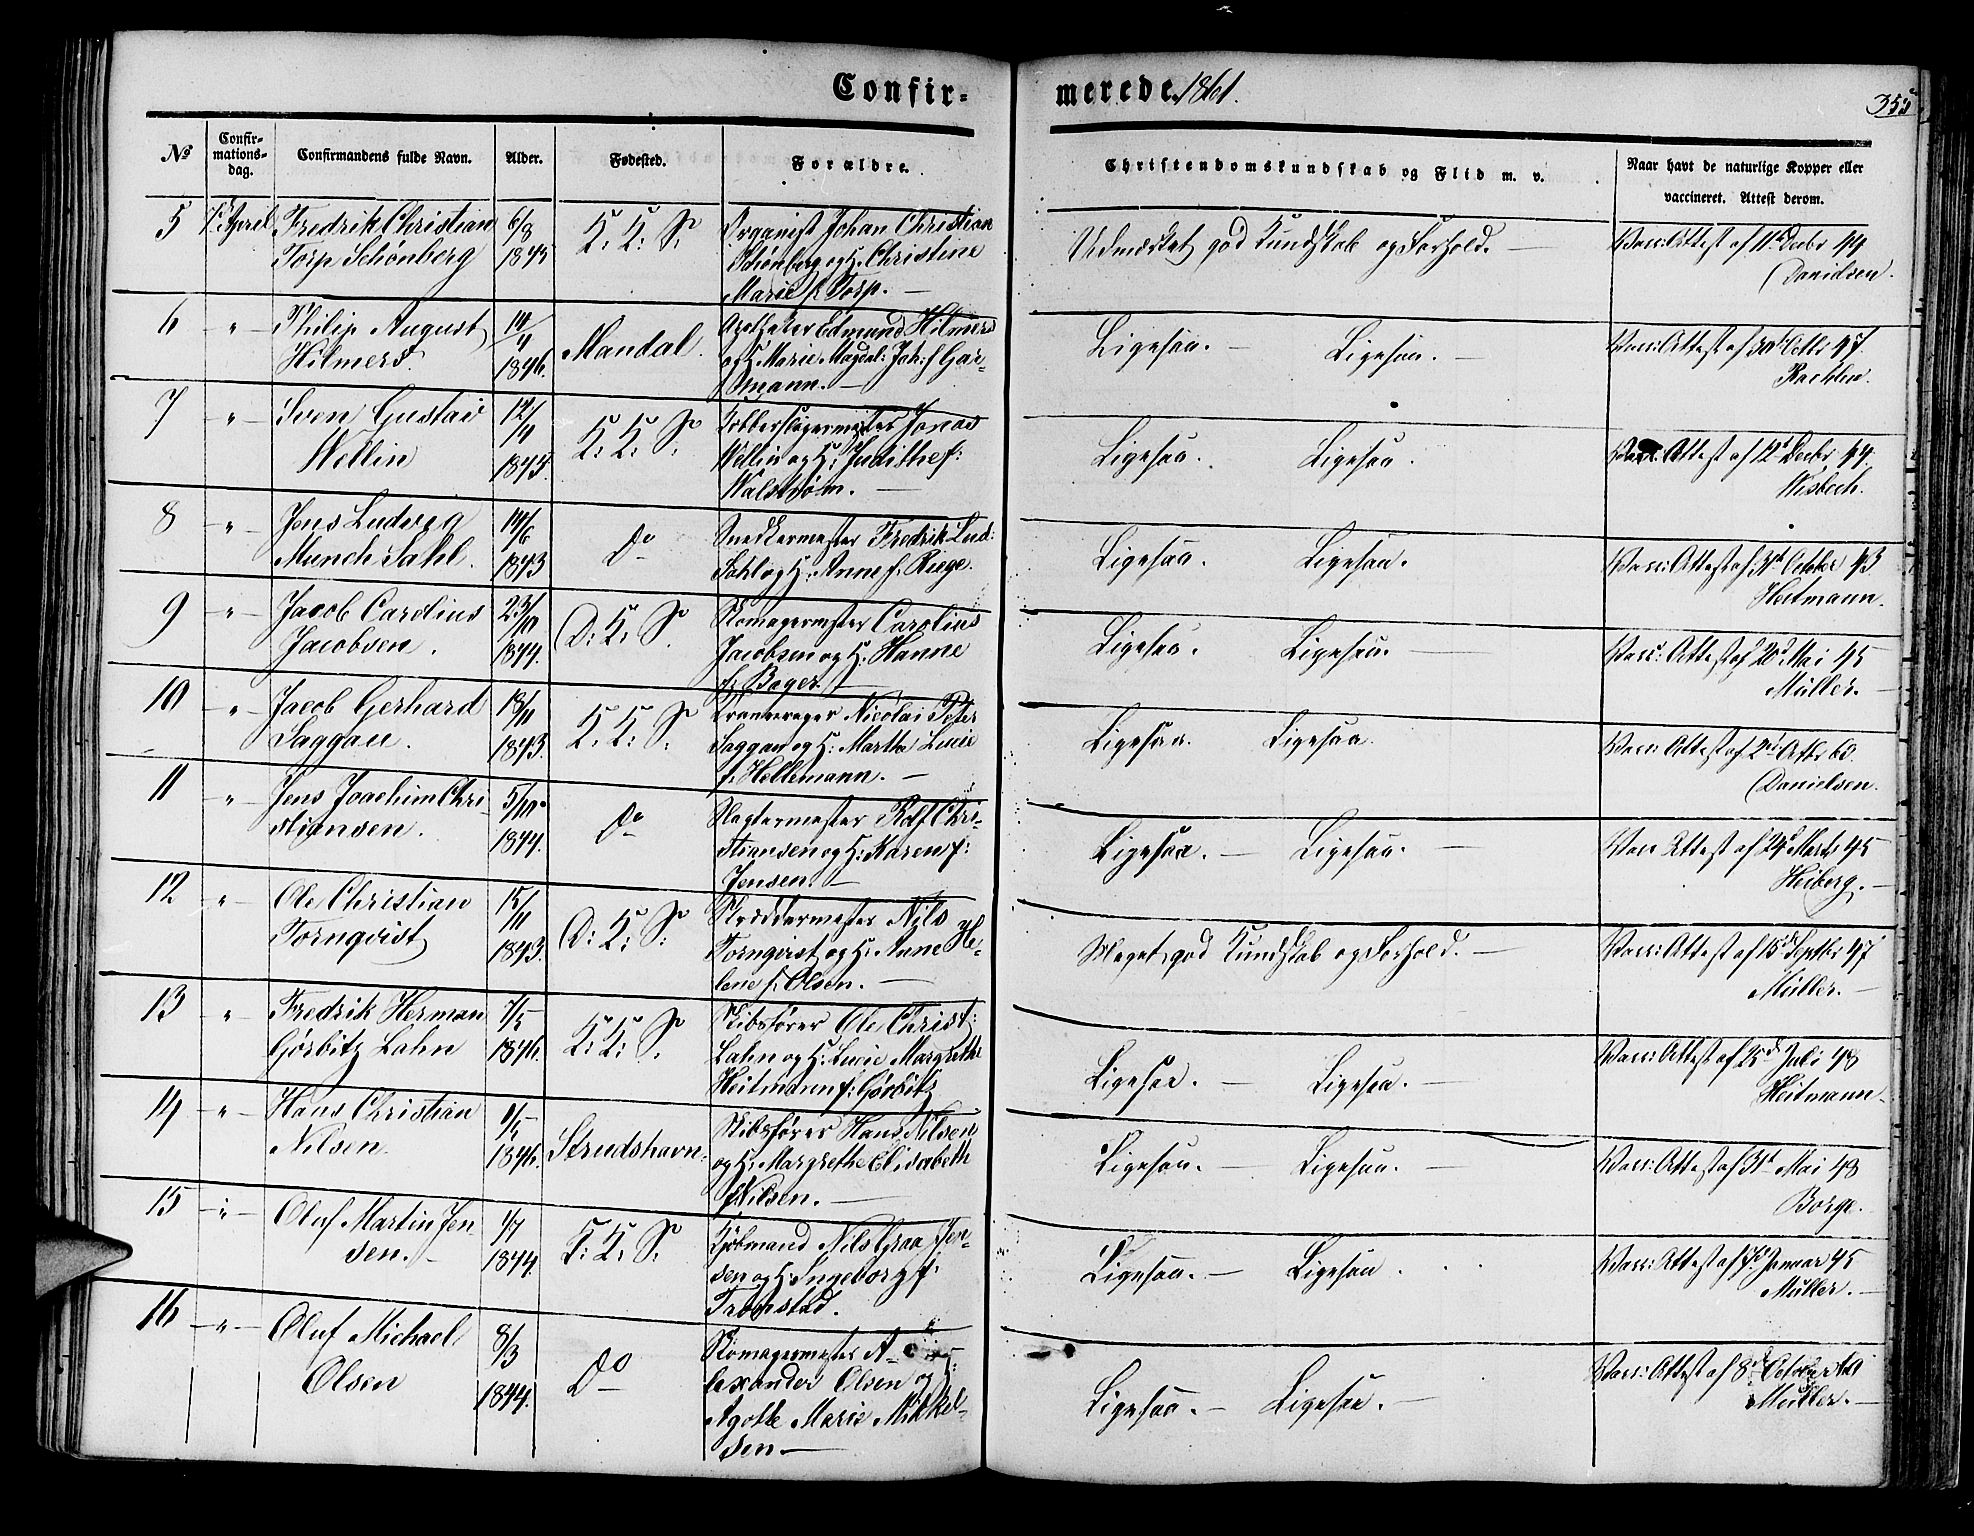 Confir= merede 1861.
355
No
Confir-
mations-
dag.
Confirmandens fulde Navn.
Alder.
Fødested.
Forældre.
Christendomskundskab og Flid m. v.
Naar havt de naturlige Kopper eller
vaccineret. Attest derom.
5 7de April Fredrik Christian 6/8 K: K: S: Organist Johan Christian Udmærket god Kundskab og Forhold. — Vacc: Attest af 11te Decbr 44
Torp Schönberg 1843 Schönberg og H. Christine Danielsen.
Marie f. Torp. —
6 " Philip August 14/4 Mandal. Apotheker Edmund Hilmers Ligesaa. — Ligesaa. — Vacc: Attest af Octbr 47.
Hilmers. 1846. og H. Marie Magdal: Joh: f Gar-
mann. —
7 " Sven Gustav 12/ K: K: S: Kobberslagermester Jonas Ligesaa. Ligesaa. Attest af 12te Decbr 44.
Wellin 1843. Wellin og H: Judithe f: Wisbech.
Walstrøm. —
8 " Jens Ludvig 14/6 Do Snedkermester Fredrik Lud: Ligesaa. Ligesaa. Vacc: Attest af 31te October 43
Munch Sahl. 1843 Sahl og H: Anne f. Riege. Heitmann.
9 " Jacob Carolius 23/10 D: K: S: Skomagermester Carolius Ligesaa. Ligesaa. — Vacc: Attest af 20de Mai 45
Jacobsen. 1844. Jacobsen og H. Hanne Müller. —
f: Bager. —
10 " Jacob Gerhard 18/11 K: K: S: Nicolai Peter Ligesaa. Ligesaa. Vacc: Attest af 2den Octbr 60.
Saggau. 1843. Saggau og H: Martha Lucie Danielsen.
f. Hellemann. —
11 " Jens Joachim Chri- 5/10 Do Slagtermester Rolf Chri- Ligesaa. — Ligesaa. — Vacc Attest af 24de Marts 45
stiansen. 1844. stiansen og H: Karen f: Heiberg. —
Jensen. —
12 " Ole Christian 15/11 D: K: S: Skræddermester Nils Meget god Kundskab og Forhold. — Vacc: Attest af 15de Septbr 47
Tornqvist 1843. Tornqvist og H. Anne He- Müller. —
lene f. Olsen. —
13 " Fredrik Herman 7/5 K: K: S: Skibsfører Ole Christ: Ligesaa. — Ligesaa. — Vacc: Attest af 25de Juli 48
Görbitz Lahn 1846. Lahn og H: Lucie Margrethe Heitmann.
Heitmann f: Görbitz
14 " Hans Christian 1/5 Strudshavn. Skibsfører Hans Nilsen Ligesaa. — Ligesaa. — Vacc: Attest af 31te Mai 48
Nilsen. 1846. og H. Margrethe Elisabeth Borge.
f Nilsen. —
15 " Oluf Martin Jen- 1/7 K: K: S: Kjøbmand Nils Graa Jen- Ligesaa. — Ligesaa. Vacc: Attest af 7de Januar 45
sen. — 1844. sen og H. Ingeborg f. Müller. —
Tromstad.
16 " Oluf Michael 8/3 Do Skomagermester A- Ligesaa. — Ligesaa. — Vacc: Attest af 8de October
Olsen 1844. lexander Olsen og H: Müller. —
Agothe Marie Mikkel-
sen —